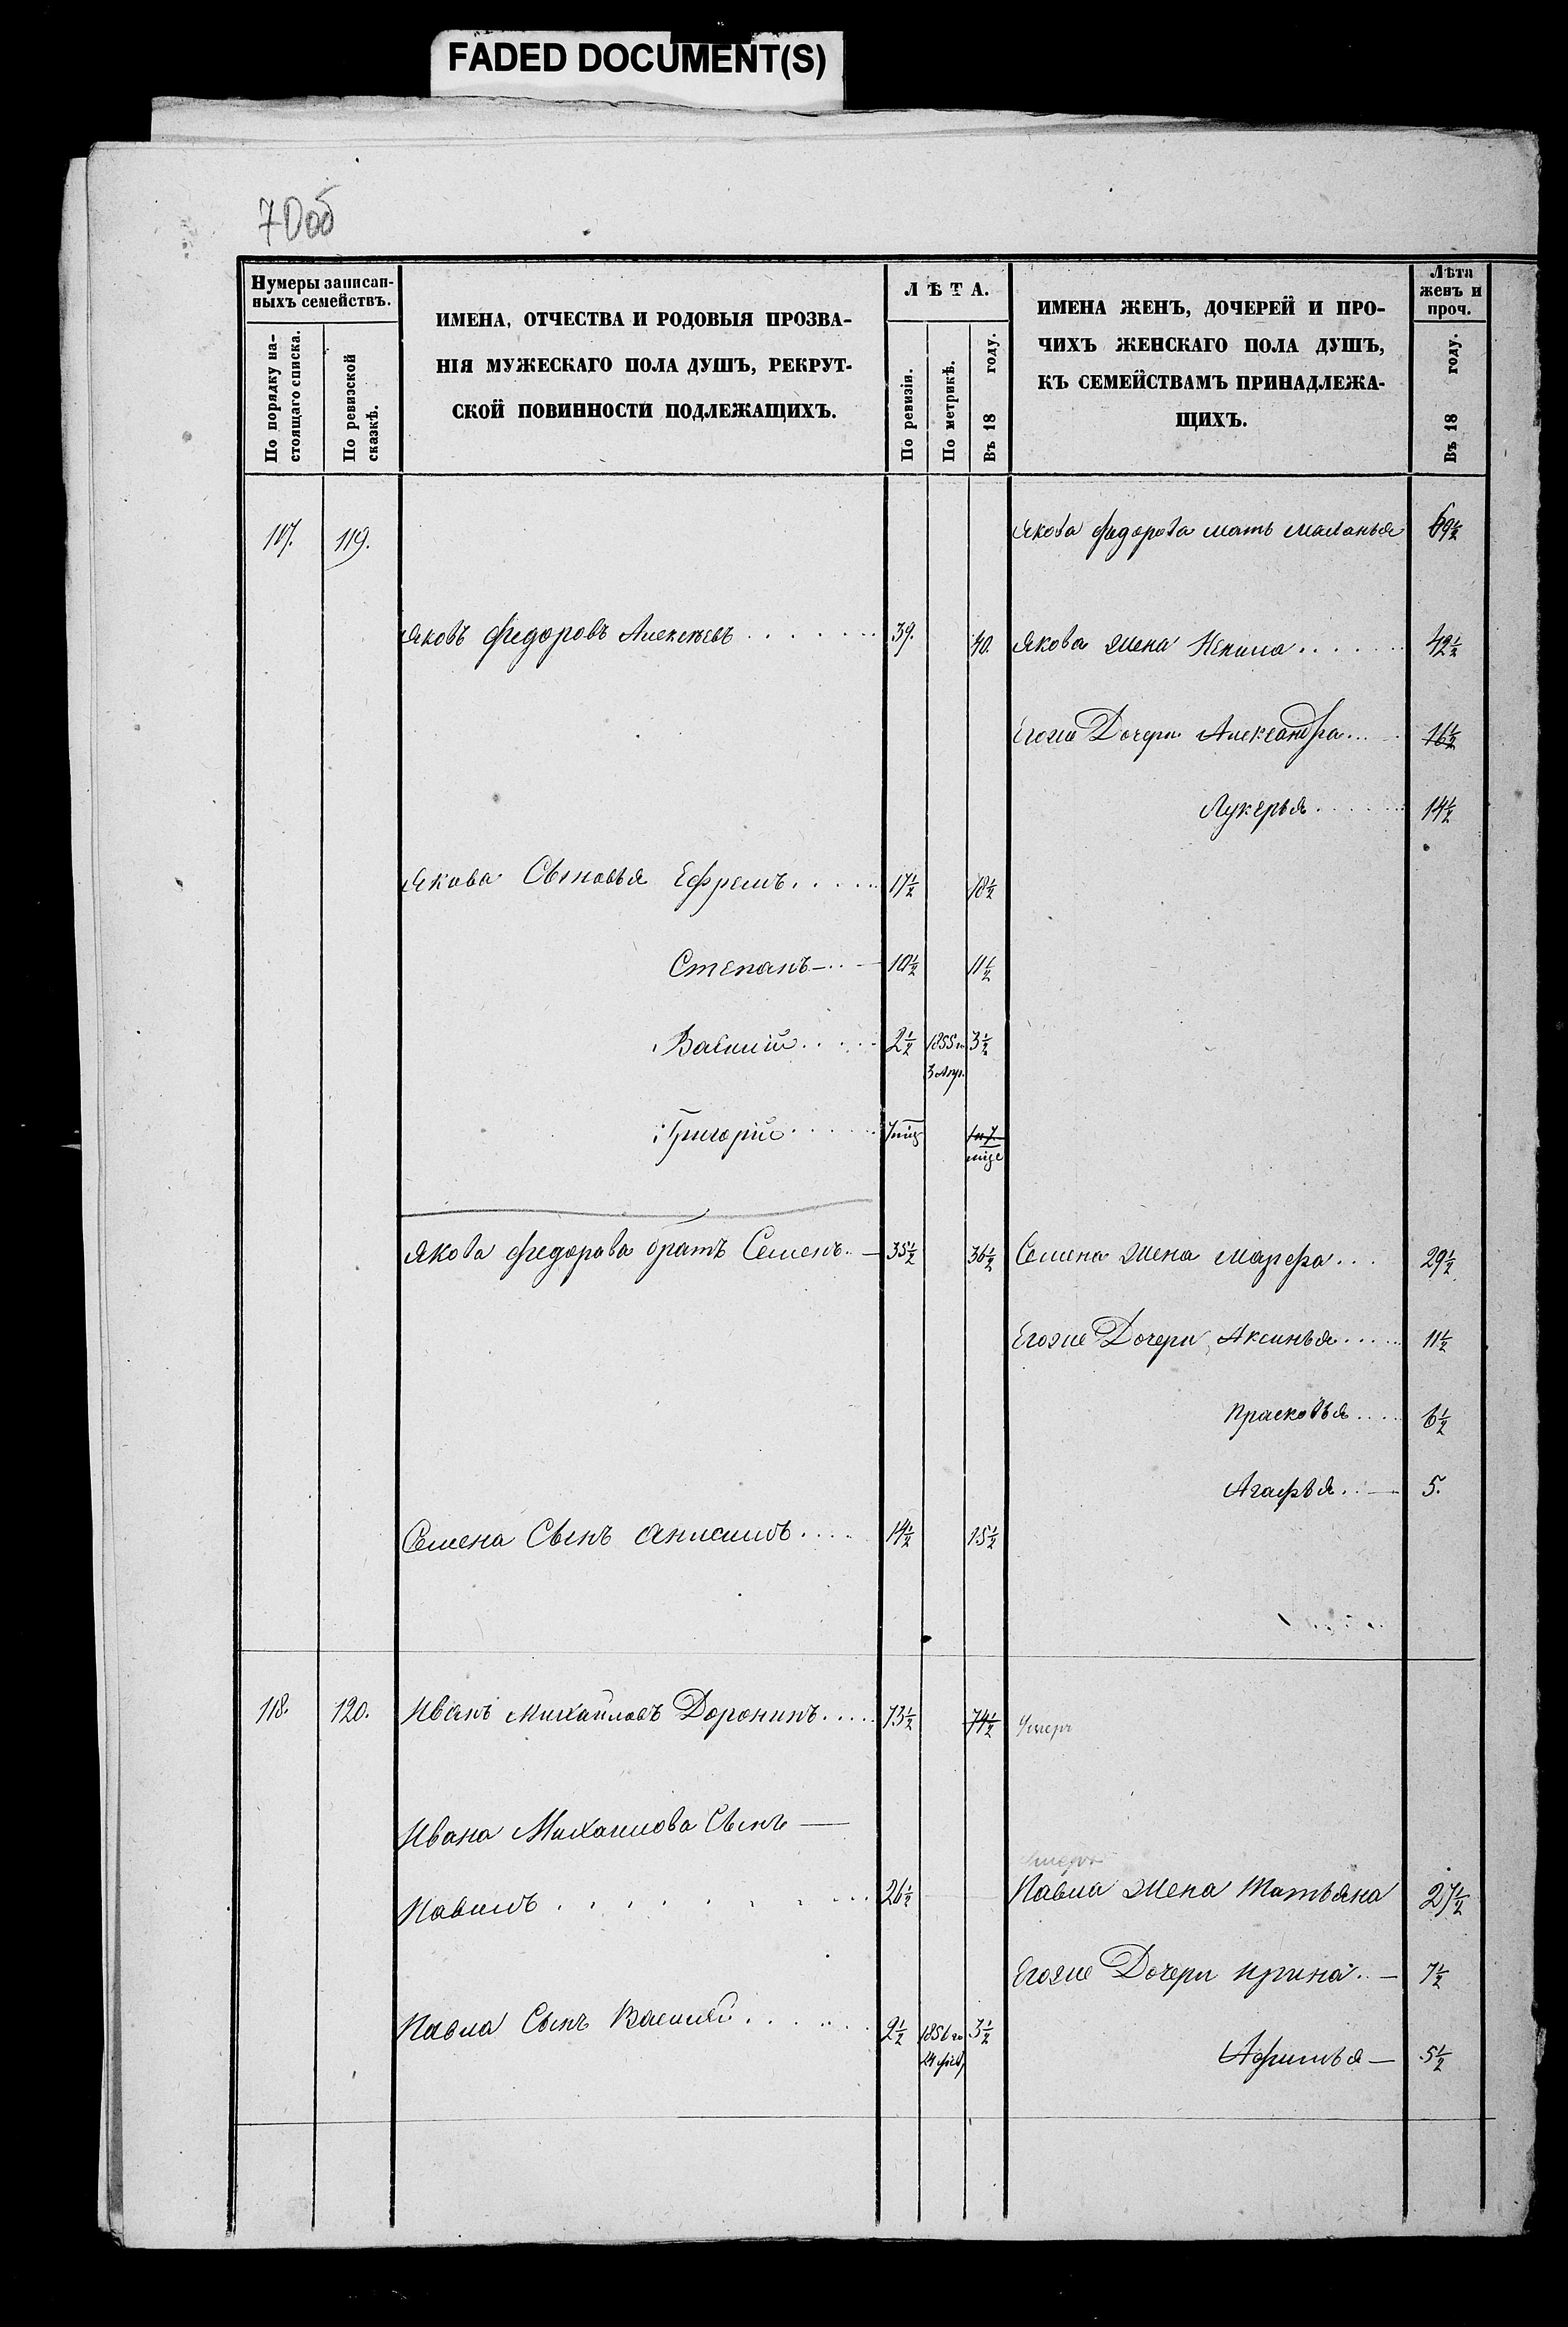 FADED DOCUMENT(S)
70об
Нумеры записан-
ныхъ семействъ.
По порядку на-
стоящаго списка.
По ревизской
сказкѣ.
ИМЕНА, ОТЧЕСТВА И РОДОВЫЯ ПРОЗВА-
НІЯ МУЖЕСКАГО ПОЛА ДУШЪ, РЕКРУТ-
СКОЙ ПОВИННОСТИ ПОДЛЕЖАЩИХЪ.
ЛѢТА.
По ревизіи.
По метрикѣ.
Въ 18 году.
ИМЕНА ЖЕНЪ, ДОЧЕРЕЙ И ПРО-
ЧИХЪ ЖЕНСКАГО ПОЛА ДУШЪ,
КЪ СЕМЕЙСТВАМЪ ПРИНАДЛЕЖА-
ЩИХЪ.
Лѣта
женъ и
проч.
Въ 18 году.
117. 119. Якова Федорова мать Маланья 69½
Яковъ Федоровъ Алексѣевъ 39. 40. Якова жена 42½
Егоже Дочери Александра 16½
Лукерья 14½
Якова Сыновья Ефремъ 17½ 18½
Степанъ 10½ 11½
Василій 2½ 1855 го 3½
3 Апр.
Григорій 7 мѣц 1 и 7
мѣце
Якова Федорова братъ Семенъ 35½ 36½ Семена жена Марфа 29½
Егоже Дочери Аксинья 11½
Прасковья 6½
Агафья 5.
Семена Сынъ Анисимъ 14½ 15½
118. 120. Иванъ Михайловъ Доронинъ 73½ 74½ Умеръ
Ивана Михайлова Сынъ
Павелъ 26½ Павла жена Татьяна 27½
Егоже Дочери Ирина 7½
Павла Сынъ Василій 2½ 1856 го 3½
24
Афимья 5½